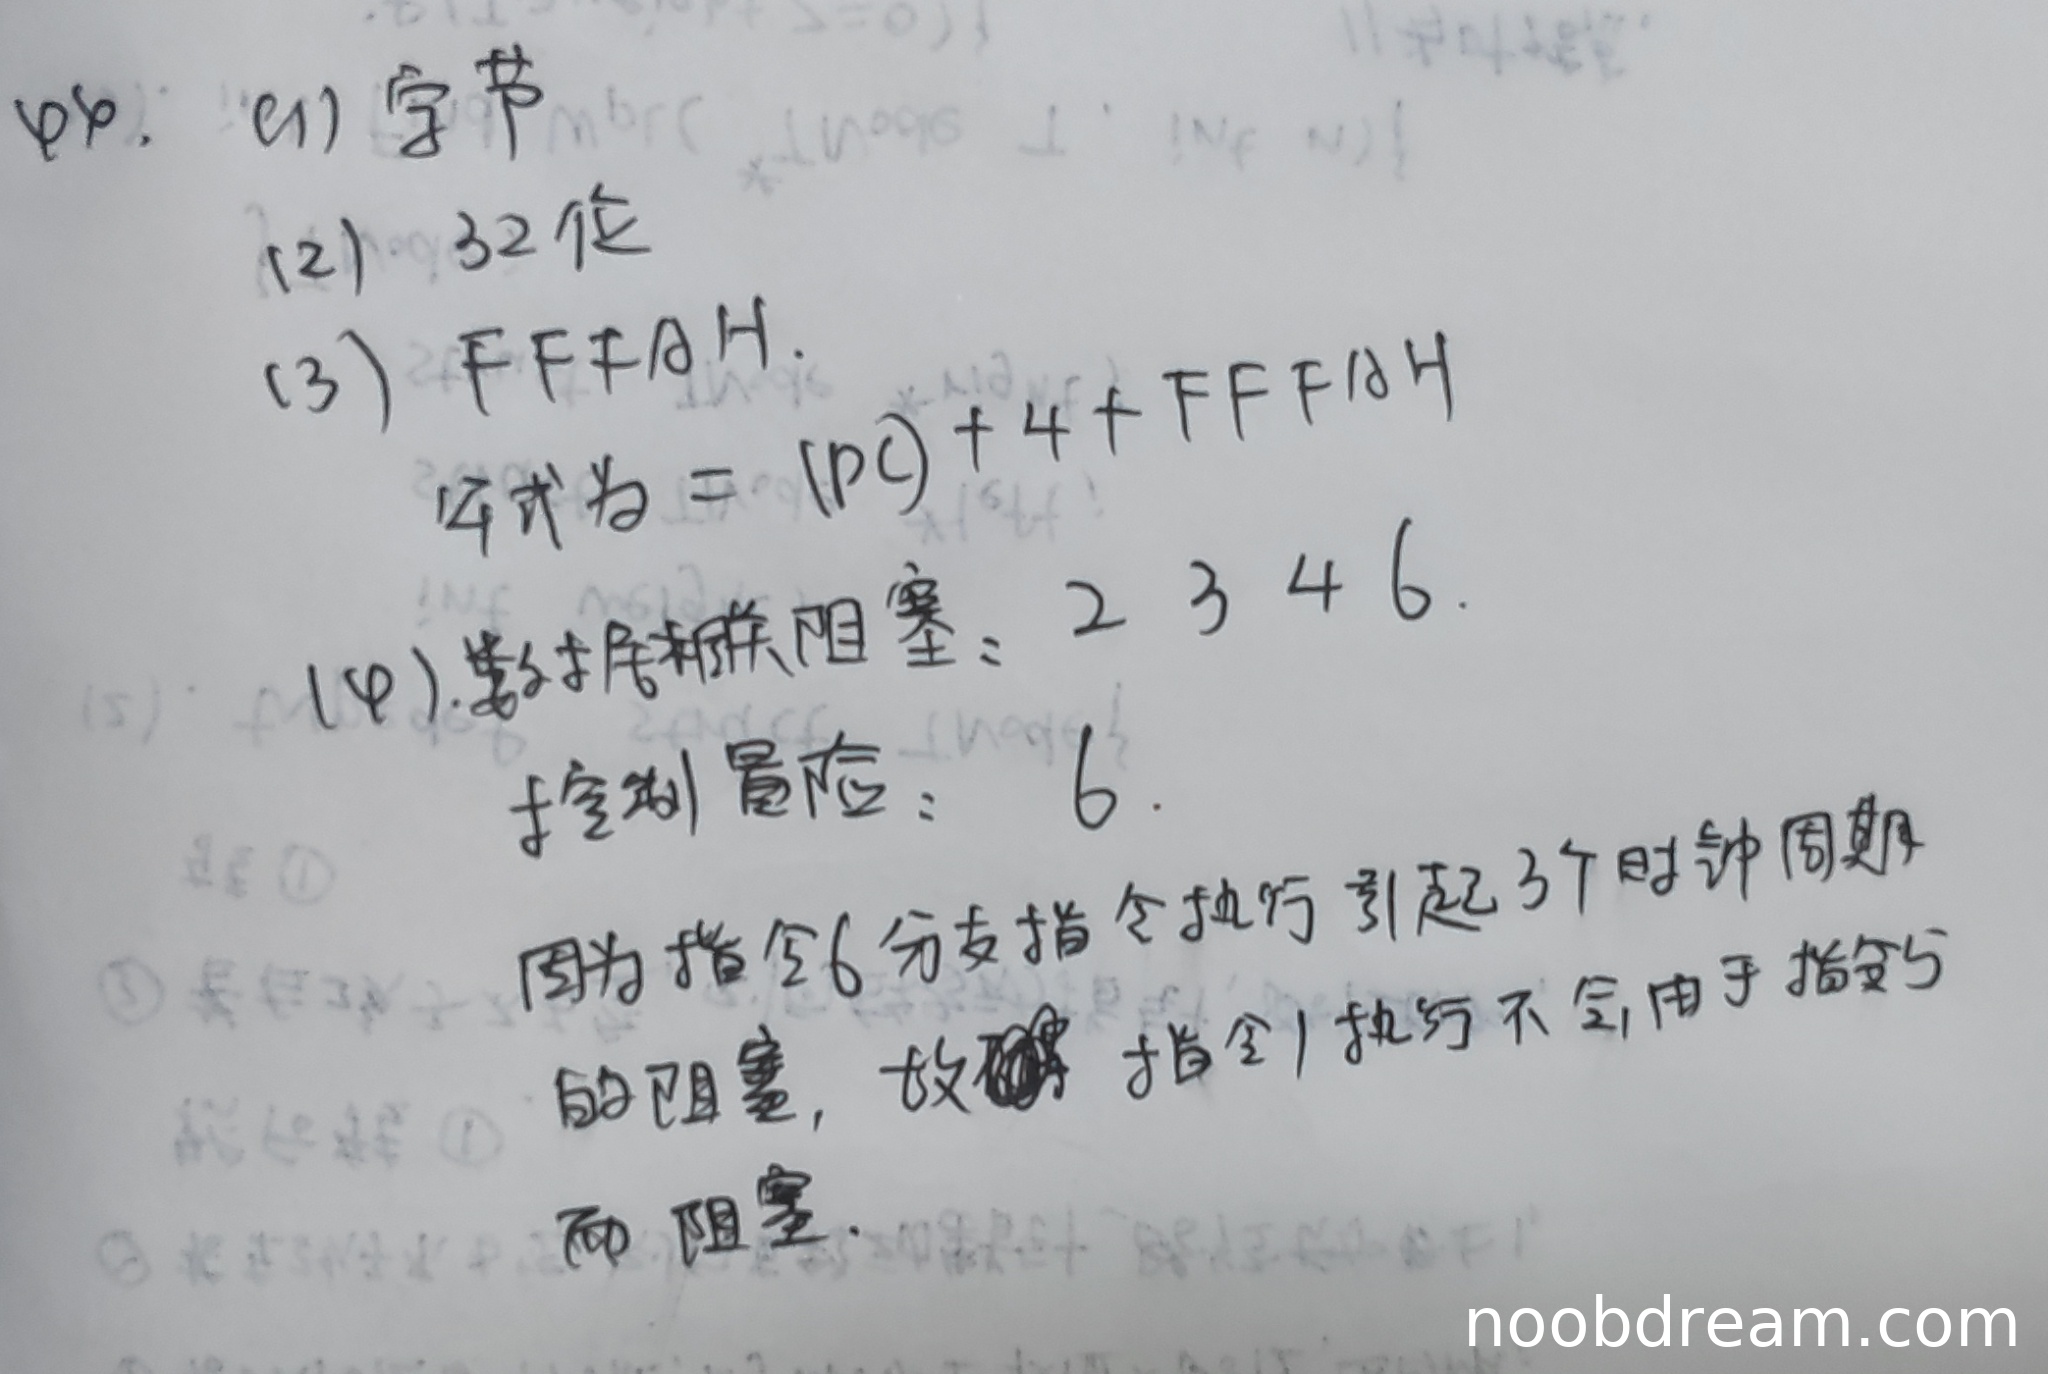 44. (1) 字节
(2) 32位
(3) FFFAH.
公式为 = (PC) + 4 + FFFAH
(4).数据相联阻塞: 2 3 4 6.
控制冒险: 6.
因为指令6分支指令执行引起3个时钟周期
的阻塞, 故 指令1执行不会,由于指令5
而阻塞.
noobdream.com